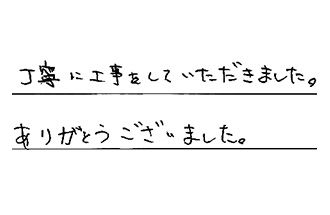 丁寧に工事をしていただきました。
ありがとうございました。